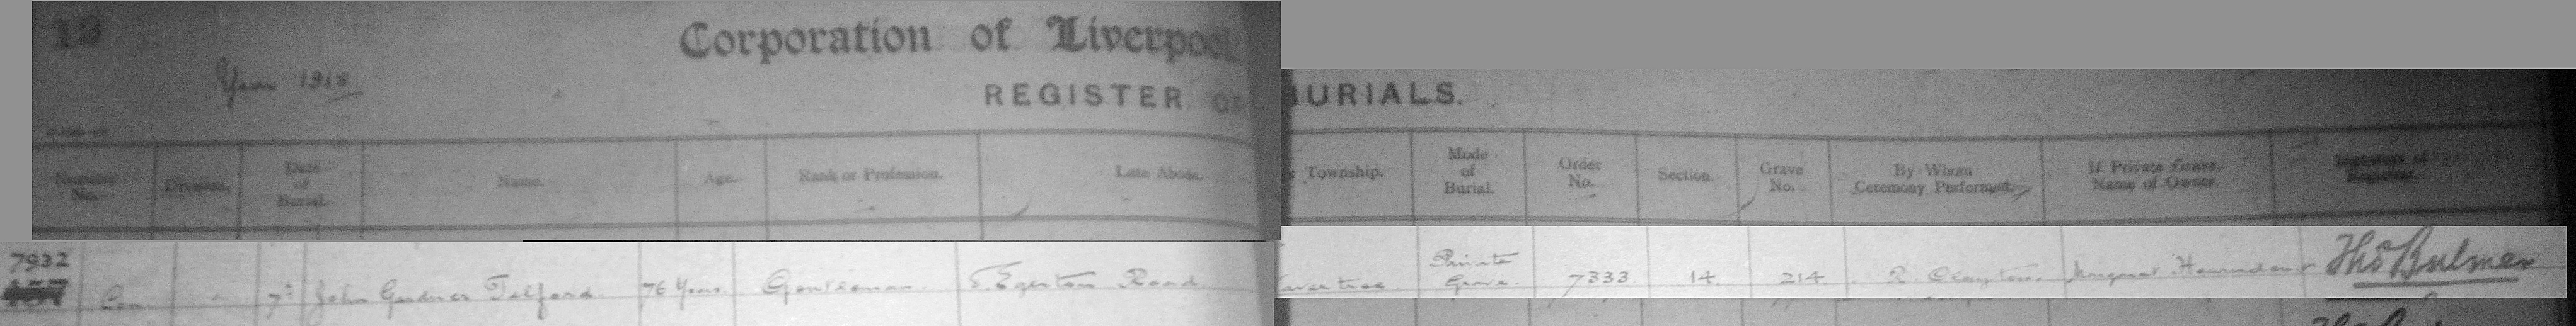 19
Corporation of Liverpool
Year 1918
REGISTER OF BURIALS.
Register No. Division. Date of Burial. Name. Age. Rank or Profession. Late Abode. Township. Mode of Burial. Order No. Section. Grave No. By Whom Ceremony Performed. If Private Grave, Name of Owner. Signature of Registrar.
7932
457 Con 7th John Gardner Telford 76 Years Gentleman. Egerton Road Private Grave. 7333 14 214 R. Clayton Margaret Thos Bulmer